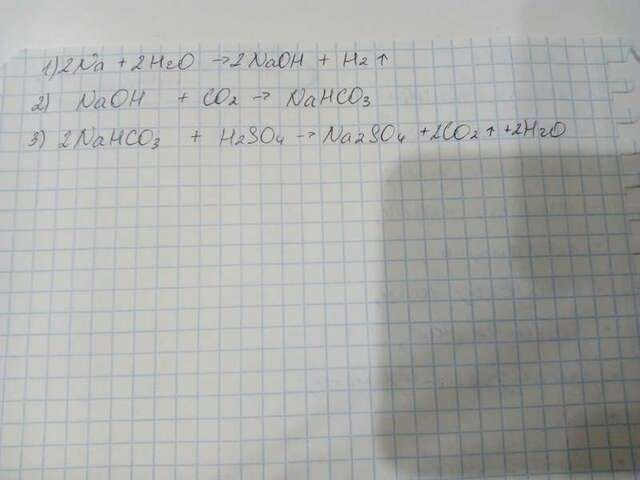 1) 2Na + 2H2O → 2NaOH + H2↑
2) NaOH + CO2 → NaHCO3
3) 2NaHCO3 + H2SO4 → Na2SO4 + 2CO2↑ + 2H2O